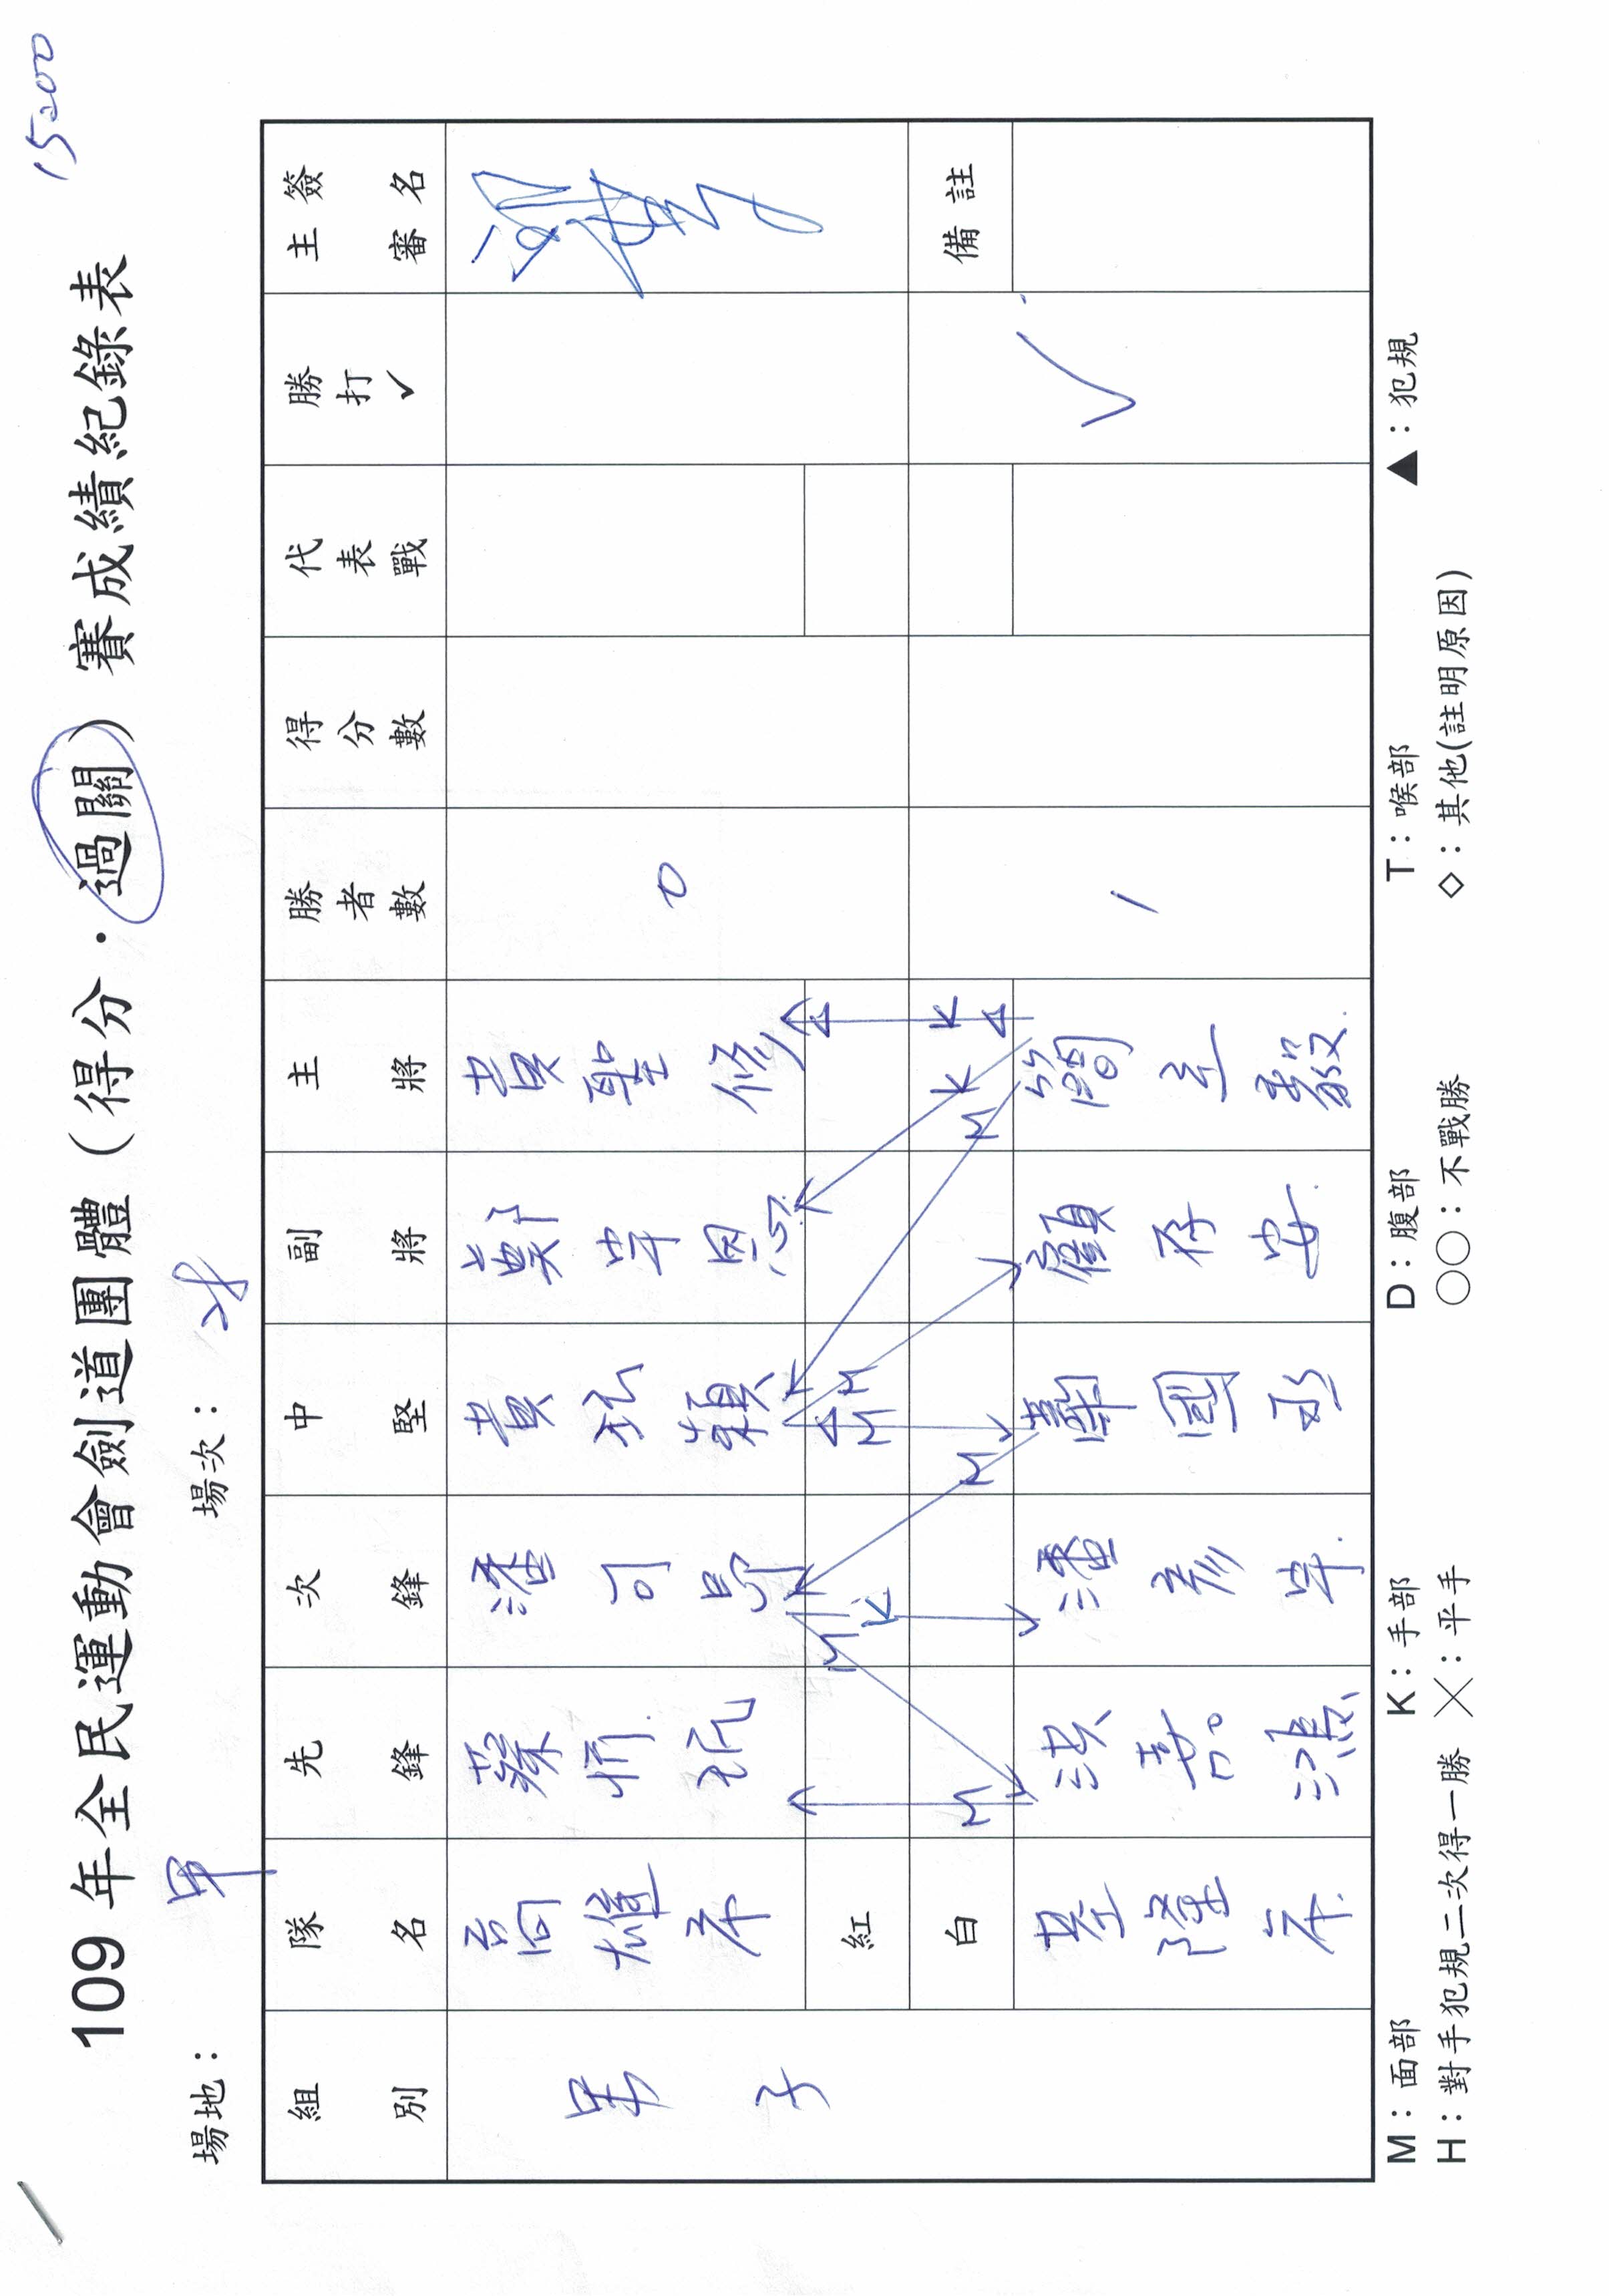 15:00
109 年全民運動會劍道團體（得分．過關）賽成績紀錄表
場地： 甲 場次：
組別 隊名 先鋒 次鋒 中堅 副將 主將 勝者數 得分數 代表戰 勝打✓ 主審簽名
男子 高雄市 潘 黃 鄭宇恩 黃聖修 0
紅 M K △ M M △
白 M M M K K △ 備註
基隆市 洪 潘彥 國 顧存安 簡立毅 1 ✓
M：面部 K：手部 D：腹部 T：喉部 ▲：犯規
H：對手犯規二次得一勝 ╳：平手 ○○：不戰勝 ◇：其他(註明原因)